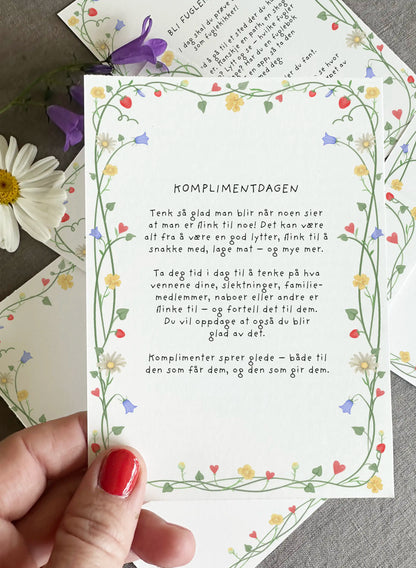 BLI FUGLE
I dag skal du prøve
som fuglekikker!
KOMPLIMENTDAGEN
Tenk så glad man blir når noen sier
at man er flink til noe! Det kan være
alt fra å være en god lytter, flink til å
snakke med, lage mat – og mye mer.
Ta deg tid i dag til å tenke på hva
vennene dine, slektninger, familie-
medlemmer, naboer eller andre er
flinke til – og fortell det til dem.
Du vil oppdage at også du blir
glad av det.
Komplimenter sprer glede – både til
den som får dem, og den som gir dem.